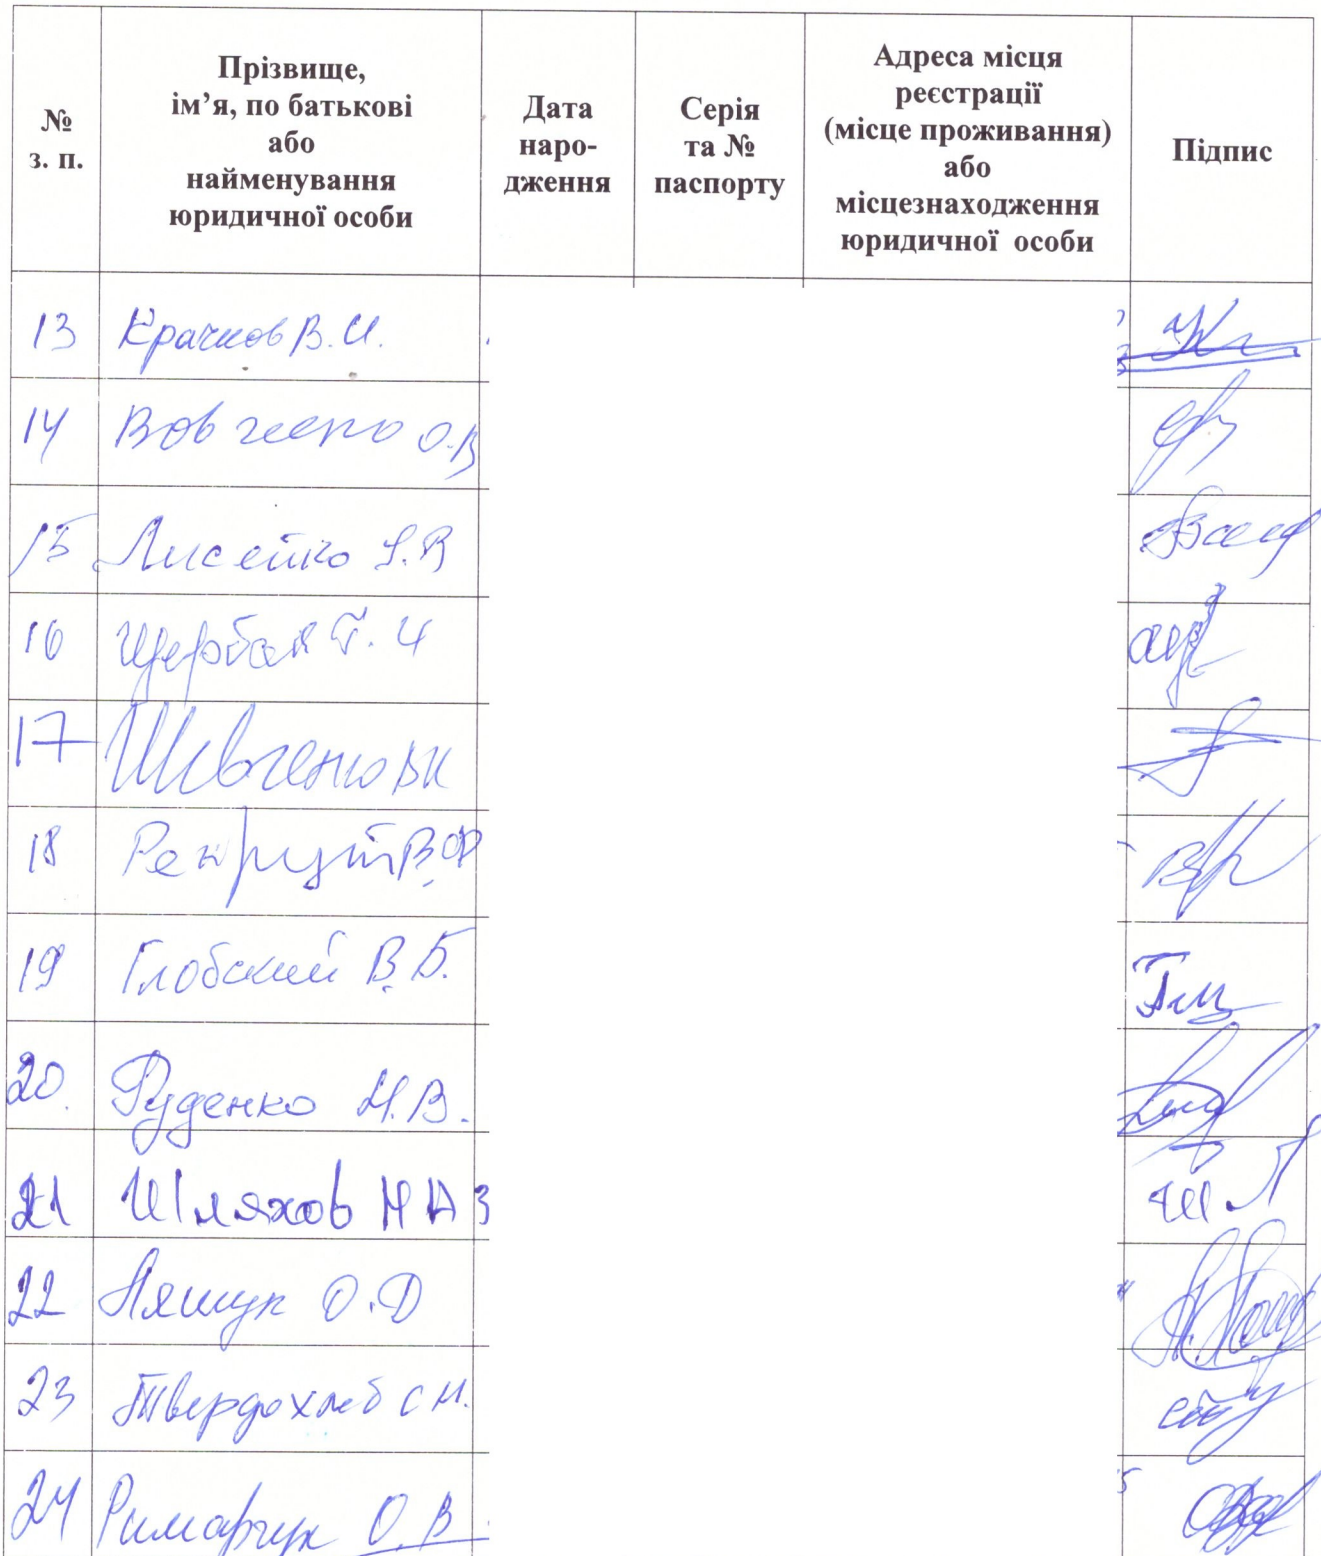 №
з. п.
Прізвище,
ім’я, по батькові
або
найменування
юридичної особи
Дата
наро-
дження
Серія
та №
паспорту
Адреса місця
реєстрації
(місце проживання)
або
місцезнаходження
юридичної особи
Підпис
13 Крачков В.И.
14 Вовченко О.В
15 Лисенко
16 Щербак Г.И
17 Шевченко ВИ
18 Рекрут В.Ф
19 Глобский В.Б.
20. Руденко Н.В.
21 Шляхов Н А
22 Ляшук О.Д
23 Твердохлеб С Н.
24 Римарчук О.В